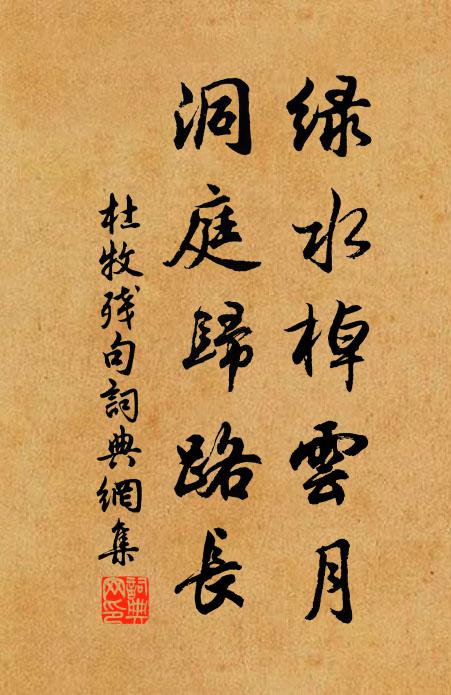 绿水棹雲月
洞庭歸路長
杜牧殘句詞典網集
詞典網印